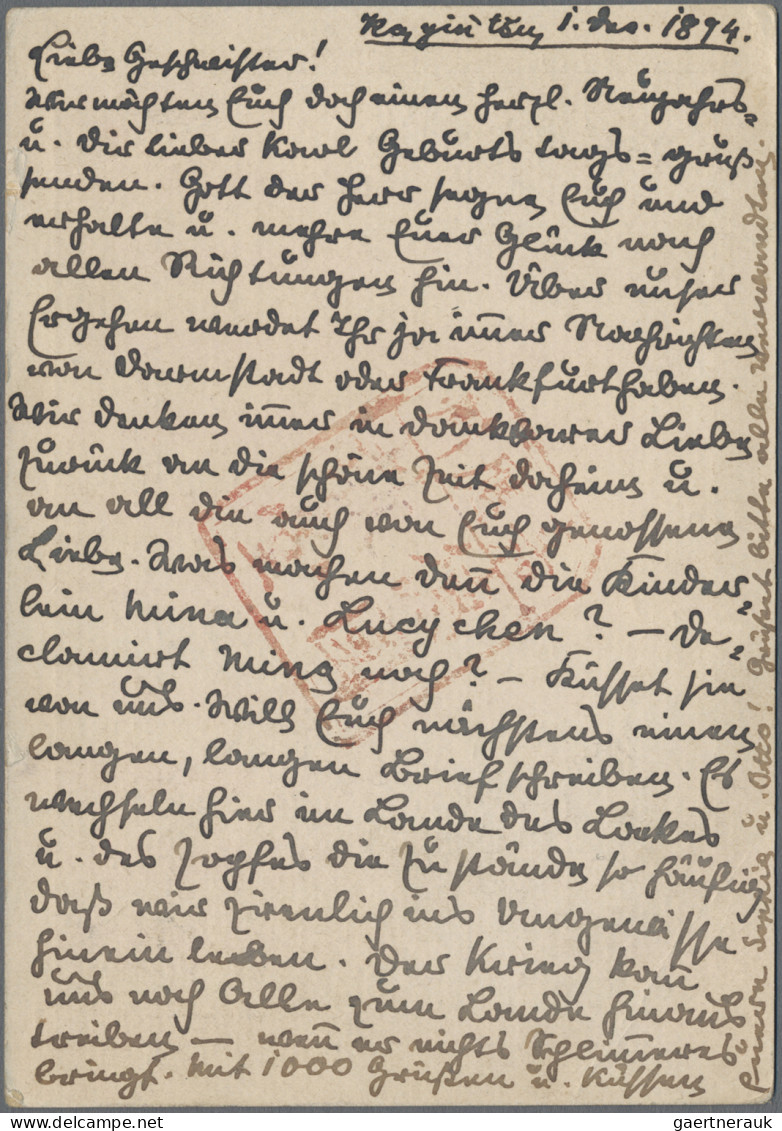 Kayintschu, 1. Dez. 1894.
Liebe Geschwister!
Wir möchten Euch doch einen herzl. Neujahrs-
u. Dir lieber Karl Geburtstags-gruß
senden. Gott der Herr segne Euch und
erhalte u. mehre Euer Glück nach
allen Richtungen hin. Über unser
Ergehen werdet Ihr ja im̄er Nachrichten
von Darmstadt oder Frankfurt haben.
Wir denken im̄er in dankbarer Liebe
zurück an die schöne Zeit daheim u.
an all die auch von Euch genossene
Liebe. Was machen den̄ die Kinder-
lein Mina u. Lucychen? – De-
clamirt Mina noch? – Küsset sie
von uns. Will Euch nächstens einen
langen, langen Brief schreiben. Es
wechseln hier im Lande des
u. des Zopfes die Zustände so häufig
daß wir ziemlich ins Ungewisse
hinein leben. Der Krieg kan̄
uns noch Alle zum Lande hinaus
treiben – wen̄ er nichts Schlim̄eres
bringt. Mit 1000 Grüßen u. Küssen
Eure Sophie u. Otto! Grüßet bitte alle Verwandten.
gaertnerauk